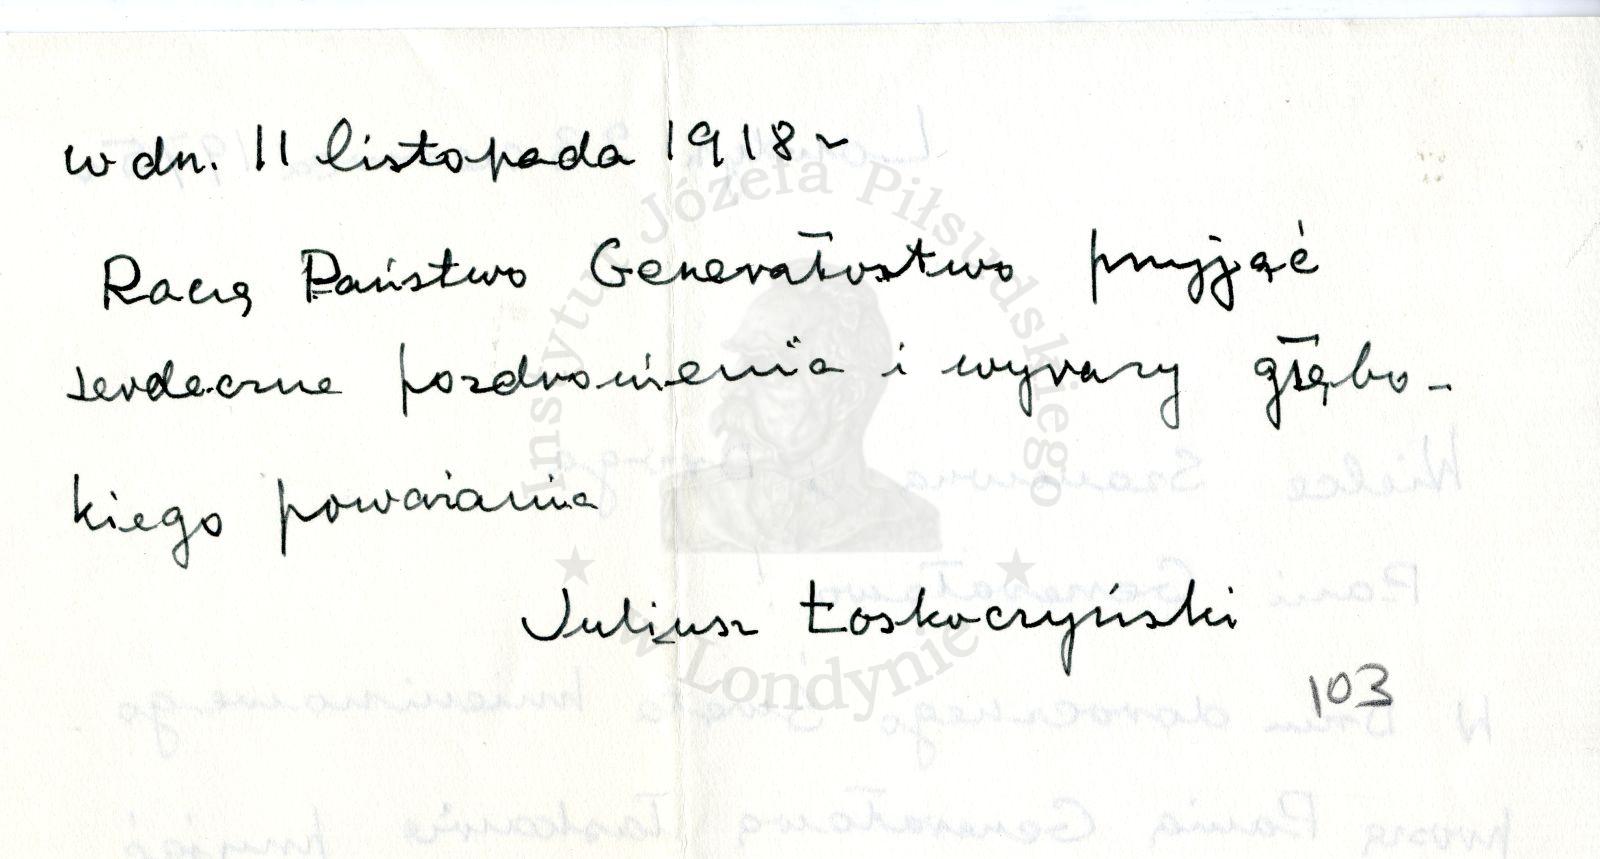 w dn. 11 listopada 1918 r
Raczą Państwo Generałostwo przyjąć
serdeczne pozdrowienia i wyrazy głębo-
kiego poważania
Juliusz Łoskoczyński
103
Instytut Józefa Piłsudskiego
w Londynie